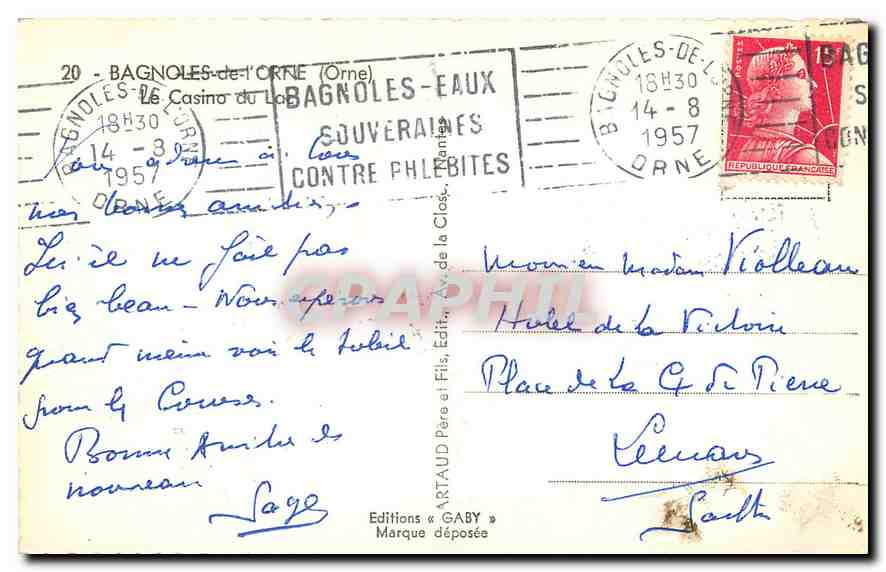 20 - BAGNOLES-de-l'ORNE (Orne)
Le Casino du Lac
BAGNOLES-DE-L'ORNE
18H30
14 - 8
1957
ORNE
BAGNOLES-EAUX
SOUVERAINES
CONTRE PHLEBITES
BAGNOLES-DE-L'ORNE
18H30
14 - 8
1957
ORNE
15F
REPUBLIQUE FRANCAISE
BAG
S
CON
à tous
nos bonnes amitiés,
Ici il ne fait pas
bien beau - Nous espérons
quand même voir le soleil
pour les Courses.
Bonne Amitié et
nouveau
ARTAUD Père et Fils, Edit., Av. de la Close, Nantes
CPARPHIL
Monsieur Madame Violleau
Hotel de la Victoire
Place de la Cx de Pierre
Le Mans
Sarthe
Editions « GABY »
Marque déposée